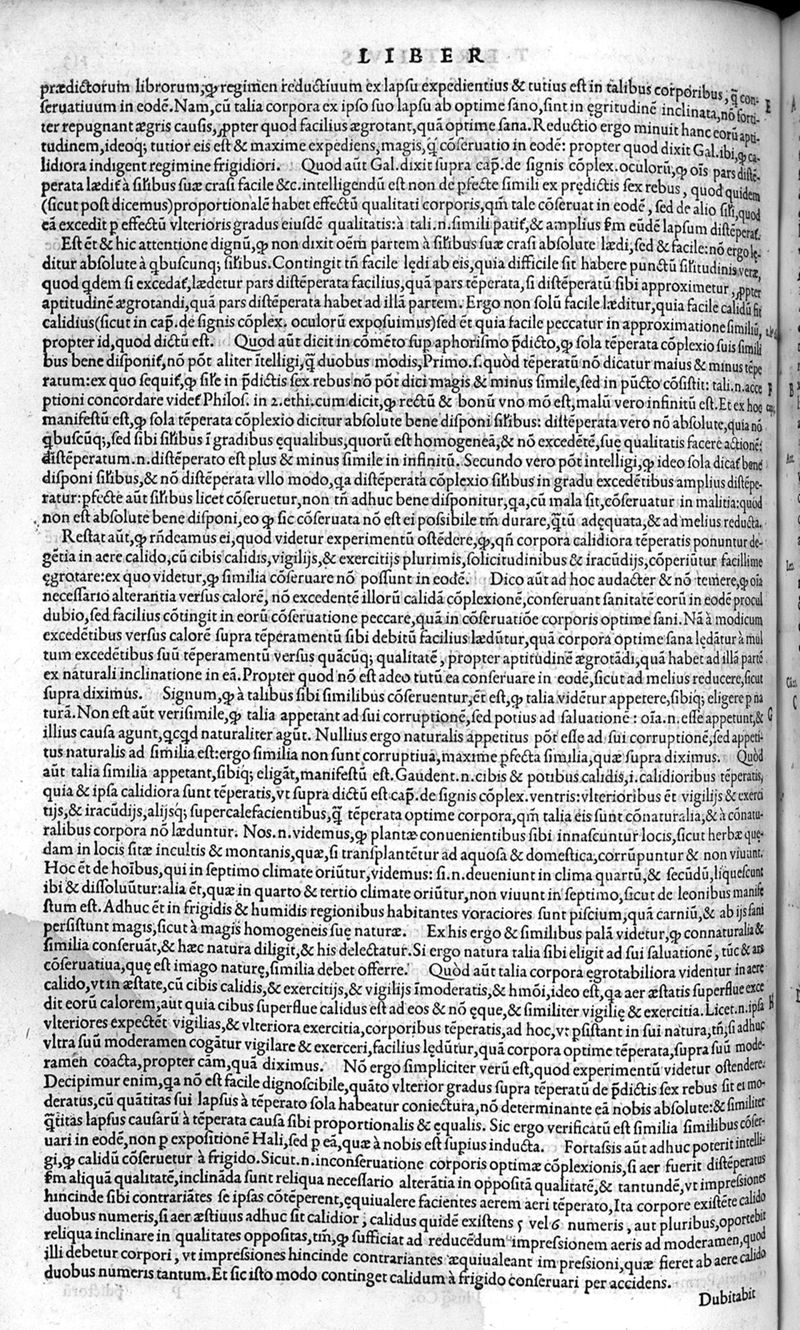 LIBER
prædictorum librorum, ꝙ regimen reductiuum ex lapsu expedientius & tutius est in talibus corporibus, q̃ con-
seruatiuum in eodē. Nam, cū talia corpora ex ipso suo lapsu ab optime sano, sint in ęgritudinē inclinata, nō forti-
ter repugnant ægris causis, ꝓpter quod facilius ægrotant, quā optime sana. Reductio ergo minuit hanc eorū apti-
tudinem, ideoq; tutior eis est & maxime expediens, magis, q̃ cōseruatio in eodē: propter quod dixit Gal. ibi, ꝙ ca-
lidiora indigent regimine frigidiori. Quod aūt Gal. dixit supra cap̃. de signis cōplex. oculorū, ꝙ oīs pars distē-
perata lædit̃ à sil'ibus suæ crasi facile &c. intelligendū est non de ꝑfecte simili ex prędictis sex rebus, quod quidem
(sicut post dicemus) proportionalē habet effectū qualitati corporis, qm̃ tale cōseruat in eodē, sed de alio sil'i, quod
eā excedit ꝑ effectū vlterioris gradus eiusdē qualitatis: à tali. n. simili patit̃, & amplius ꝑm eūdē lapsum distēperat̃.
Est ēt & hic attentione dignū, ꝙ non dixit oēm partem à sil'ibus suæ crasi absolute lædi, sed & facile: nō ergo lę-
ditur absolute à qbuscunq; sil'ibus. Contingit tñ facile lędi ab eis, quia difficile sit habere punctū sil'itudinis veræ,
quod qdem si excedat̃, lædetur pars distēperata facilius, quā pars tēperata, si distēperatū sibi approximetur, ꝓpter
aptitudinē ægrotandi, quā pars distēperata habet ad illā partem. Ergo non solū facile læditur, quia facile calidū fit
calidius (sicut in cap̃. de signis cōplex. oculorū exposuimus) sed ēt quia facile peccatur in approximatione similiū,
propter id, quod dictū est. Quod aūt dicit in cōmēto sup aphorismo p̃dicto, ꝙ sola tēperata cōplexio suis simili
bus bene disponit̃, nō pōt aliter ītelligi, q̃ duobus modis, Primo. s. quòd tēperatū nō dicatur maius & minus tēpe
ratum: ex quo sequit̃, ꝙ sil'e in p̃dictis sex rebus nō pōt dici magis & minus simile, sed in pūcto cōsistit: tali. n. acce
ptioni concordare videt̃ Philos. in 2. ethi. cum dicit, ꝙ rectū & bonū vno mō est, malū vero infinitū est. Et ex hoc
manifestū est, ꝙ sola tēperata cōplexio dicitur absolute bene disponi sil'ibus: distēperata vero nō absolute, quia nō
qbuscūq;, sed sibi sil'ibus ī gradibus ęqualibus, quorū est homogeneā, & nō excedētē, suę qualitatis facere actionē:
distēperatum. n. distēperato est plus & minus simile in infinitū. Secundo vero pōt intelligi, ꝙ ideo sola dicat̃ bene
disponi sil'ibus, & nō distēperata vllo modo, qa distēperata cōplexio sil'ibus in gradu excedētibus amplius distēpe-
ratur: ꝑfecte aūt sil'ibus licet cōseruetur, non tñ adhuc bene disponitur, qa, cū mala sit, cōseruatur in malitia: quòd
non est absolute bene disponi, eo ꝙ sic cōseruata nō est ei possibile tm̃ durare, q̃tū adęquata, & ad melius reducta.
Restat aūt, ꝙ rñdeamus ei, quod videtur experimentū ostēdere, ꝙ, qñ corpora calidiora tēperatis ponuntur de-
gētia in aere calido, cū cibis calidis, vigilijs, & exercitijs plurimis, solicitudinibus & iracūdijs, cōperiūtur facillime
ęgrotare: ex quo videtur, ꝙ similia cōseruare nō possunt in eodē. Dico aūt ad hoc audacter & nō temere, ꝙ oīa
necessario alterantia versus calorē, nō excedentē illorū calidā cōplexionē, conseruant sanitatē eorū in eodē procul
dubio, sed facilius cōtingit in eorū cōseruatione peccare, quā in cōseruatiōe corporis optime sani. Nā à modicum
excedētibus versus calorē supra tēperamentū sibi debitū facilius lædūtur, quā corpora optime sana lędātur à mul
tum excedētibus suū tēperamentū versus quācūq; qualitatē, propter aptitudinē ægrotādi, quā habet ad illā partē
ex naturali inclinatione in eā. Propter quod nō est adeo tutū ea conseruare in eodē, sicut ad melius reducere, sicut
supra diximus. Signum, ꝙ à talibus sibi similibus cōseruentur, ēt est, ꝙ talia vidētur appetere, sibiq; eligere ꝑ na
turā. Non est aūt verisimile, ꝙ talia appetant ad sui corruptionē, sed potius ad saluationē: oīa. n. esse appetunt, &
illius causa agunt, qcqd naturaliter agūt. Nullius ergo naturalis appetitus pōt esse ad sui corruptionē, sed appeti-
tus naturalis ad similia est: ergo similia non sunt corruptiua, maxime ꝑfecta similia, quæ supra diximus. Quòd
aūt talia similia appetant, sibiq; eligāt, manifestū est. Gaudent. n. cibis & potibus calidis, i. calidioribus tēperatis,
quia & ipsa calidiora sunt tēperatis, vt supra dictū est cap̃. de signis cōplex. ventris: vlterioribus ēt vigilijs & exerci
tijs, & iracūdijs, alijsq; supercalefacientibus, q̃ tēperata optime corpora, qm̃ talia eis sunt cōnaturalia, & à cōnatu-
ralibus corpora nō læduntur. Nos. n. videmus, ꝙ plantæ conuenientibus sibi innascuntur locis, sicut herbæ quę-
dam in locis sitæ incultis & montanis, quæ, si transplantētur ad aquosa & domestica, corrūpuntur & non viuunt.
Hoc ēt de hoībus, qui in septimo climate oriūtur, videmus: si. n. deueniunt in clima quartū, & secūdū, liquescunt
ibi & dissoluūtur: alia ēt, quæ in quarto & tertio climate oriūtur, non viuunt in septimo, sicut de leonibus manife
stum est. Adhuc ēt in frigidis & humidis regionibus habitantes voraciores sunt piscium, quā carniū, & ab ijs sani
persistunt magis, sicut à magis homogeneis suę naturæ. Ex his ergo & similibus palā videtur, ꝙ connaturalia &
similia conseruāt, & hæc natura diligit, & his delectatur. Si ergo natura talia sibi eligit ad sui saluationē, tūc & ars
cōseruatiua, quę est imago naturę, similia debet offerre. Quòd aūt talia corpora ęgrotabiliora videntur in aere
calido, vt in æstate, cū cibis calidis, & exercitijs, & vigilijs īmoderatis, & hmōi, ideo est, qa aer æstatis superflue exce
dit eorū calorem, aut quia cibus superflue calidus est ad eos & nō ęque, & similiter vigilię & exercitia. Licet. n. ipsa
vlteriores expectēt vigilias, & vlteriora exercitia, corporibus tēperatis, ad hoc, vt ꝑsistant in sui natura, tñ, si adhuc
vltra suū moderamen cogātur vigilare & exerceri, facilius lędūtur, quā corpora optime tēperata, supra suū mode-
ramen coacta, propter cām, quā diximus. Nō ergo simpliciter verū est, quod experimentū videtur ostendere:
Decipimur enim, qa nō est facile dignoscibile, quāto vlterior gradus supra tēperatū de p̃dictis sex rebus sit ei mo-
deratus, cū quātitas sui lapsus à tēperato sola habeatur coniectura, nō determinante eā nobis absolute: & similiter
q̃titas lapsus causarū à tēperata causa sibi proportionalis & ęqualis. Sic ergo verificatū est similia similibus cōser-
uari in eodē, non ꝑ expositionē Hali, sed ꝑ eā, quæ à nobis est supius inducta. Fortassis aūt adhuc poterit intelli-
gi, ꝙ calidū cōseruetur à frigido. Sicut. n. in conseruatione corporis optimæ cōplexionis, si aer fuerit distēperatus
ꝑm aliquā qualitatē, inclināda sunt reliqua necessario alterātia in oppositā qualitatē, & tantundē, vt impressiones
hincinde sibi contrariātes se ipsas cōtēperent, ęquiualere facientes aerem aeri tēperato, Ita corpore existēte calido
duobus numeris, si aer æstiuus adhuc sit calidior, calidus quidē existens 5 vel 6 numeris, aut pluribus, oportebit
reliqua inclinare in qualitates oppositas, tm̃, ꝙ sufficiat ad reducēdum impressionem aeris ad moderamen, quod
illi debetur corpori, vt impressiones hincinde contrariantes æquiualeant impressioni, quæ fieret ab aere calido
duobus numeris tantum. Et sic isto modo continget calidum à frigido conseruari per accidens.
Dubitabit